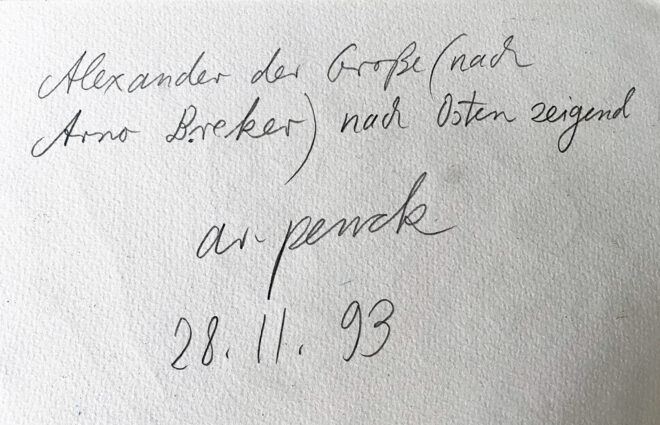 Alexander der Große (nach
Arno Breker) nach Osten zeigend
ar. penck
28. 11. 93